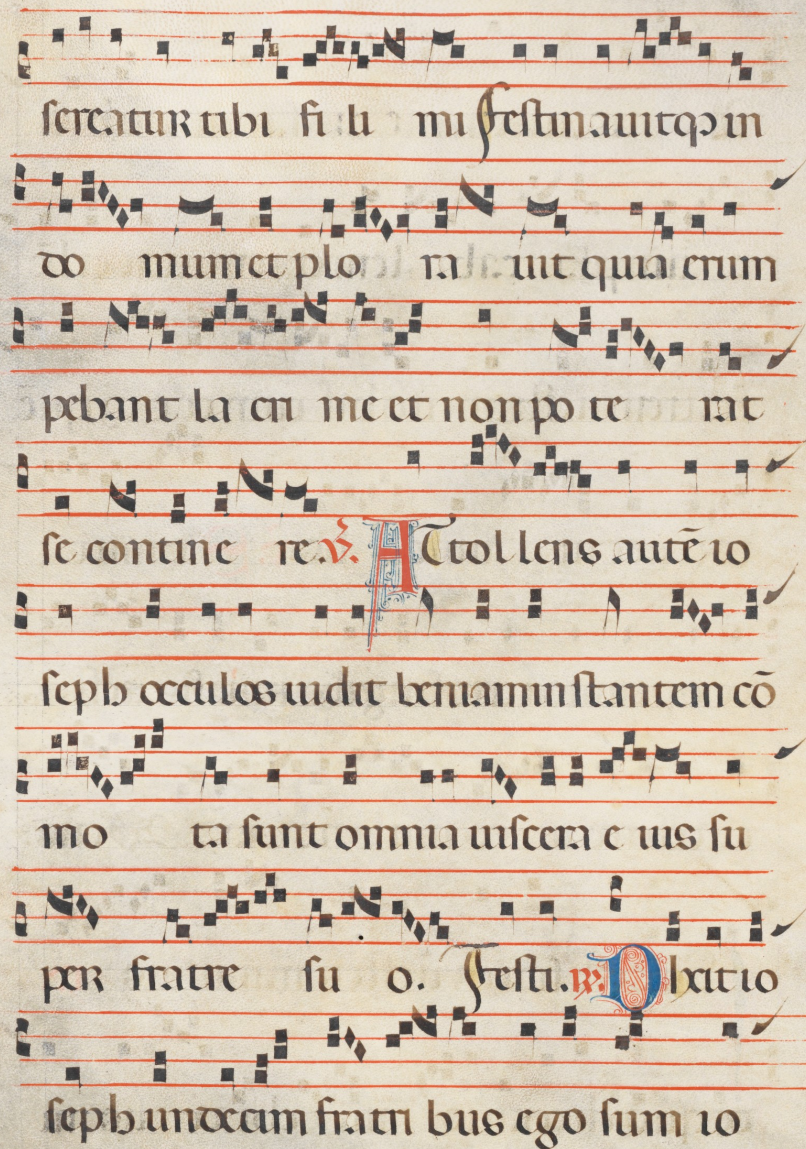 sereatur tibi fi li mi Festinauitqꝫ in
do mum et plo ra uit quia erum
pebant la cri me et non po te rat
se contine re. ℣. At tol lens autē io
seph occulos uidit beniamin stantem cō
mo ta sunt omnia uiscera e ius su
per fratre su o. Festi. ℟. Dixit io
seph undecim fratri bus ego sum io